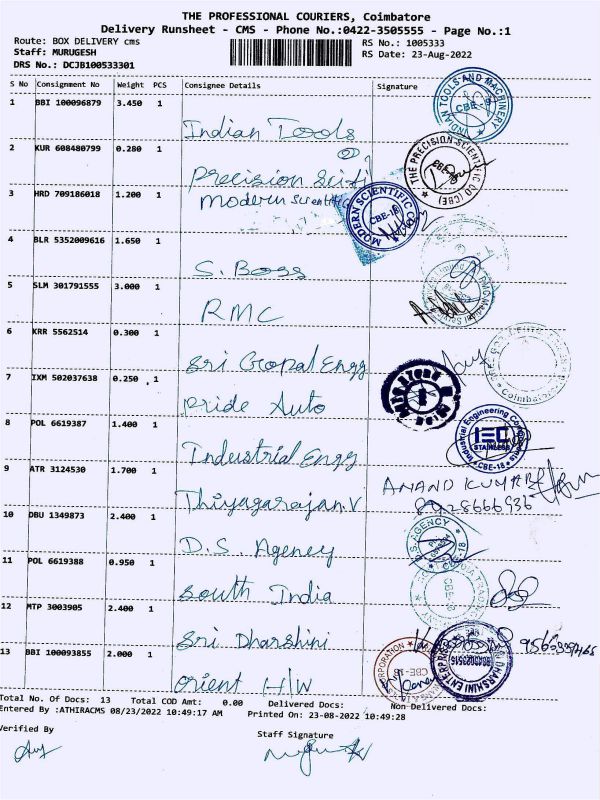 THE PROFESSIONAL COURIERS, Coimbatore
Delivery Runsheet - CMS - Phone No.:0422-3505555 - Page No.:1
Route: BOX DELIVERY cms
RS No.: 1005333
Staff: MURUGESH
RS Date: 23-Aug-2022
DRS No.: DCJB100533301
S No Consignment No Weight PCS Consignee Details Signature
1 BBI 100096879 3.450 1 Indian Tools
INDIAN TOOLS AND MACHINERY CBE-9
2 KUR 608480799 0.280 1 Precision Scifi
THE PRECISION SCIENTIFIC CO (CBE)
3 HRD 709186018 1.200 1 Modern Scientific
MODERN SCIENTIFIC CBE-18
4 BLR 5352009616 1.650 1 S. Boss
5 SLM 301791555 3.000 1 RMC
6 KRR 5562514 0.300 1 Sri Gopal Engg
Coimbatore
7 IXM 502037638 0.250 1 Pride Auto
8 POL 6619387 1.400 1 Industrial Engg
Industrial Engineering IEC STAINLESS CBE-18
9 ATR 3124530 1.700 1 Thiyagarajan.V
ANAND KUMAR
8928666936
10 DBU 1349873 2.400 1 D.S. Agency
D.S. AGENCY CBE-18
11 POL 6619388 0.950 1 South India
12 MTP 3003905 2.400 1 Sri Dharshini
DHARSHINI ENTERPRISES
13 BBI 100093855 2.000 1 Orient H/W
CORPORATION CBE-18
Total No. Of Docs: 13 Total COD Amt: 0.00 Delivered Docs: Non Delivered Docs:
Entered By :ATHIRACMS 08/23/2022 10:49:17 AM Printed On: 23-08-2022 10:49:28
Verified By
Staff Signature